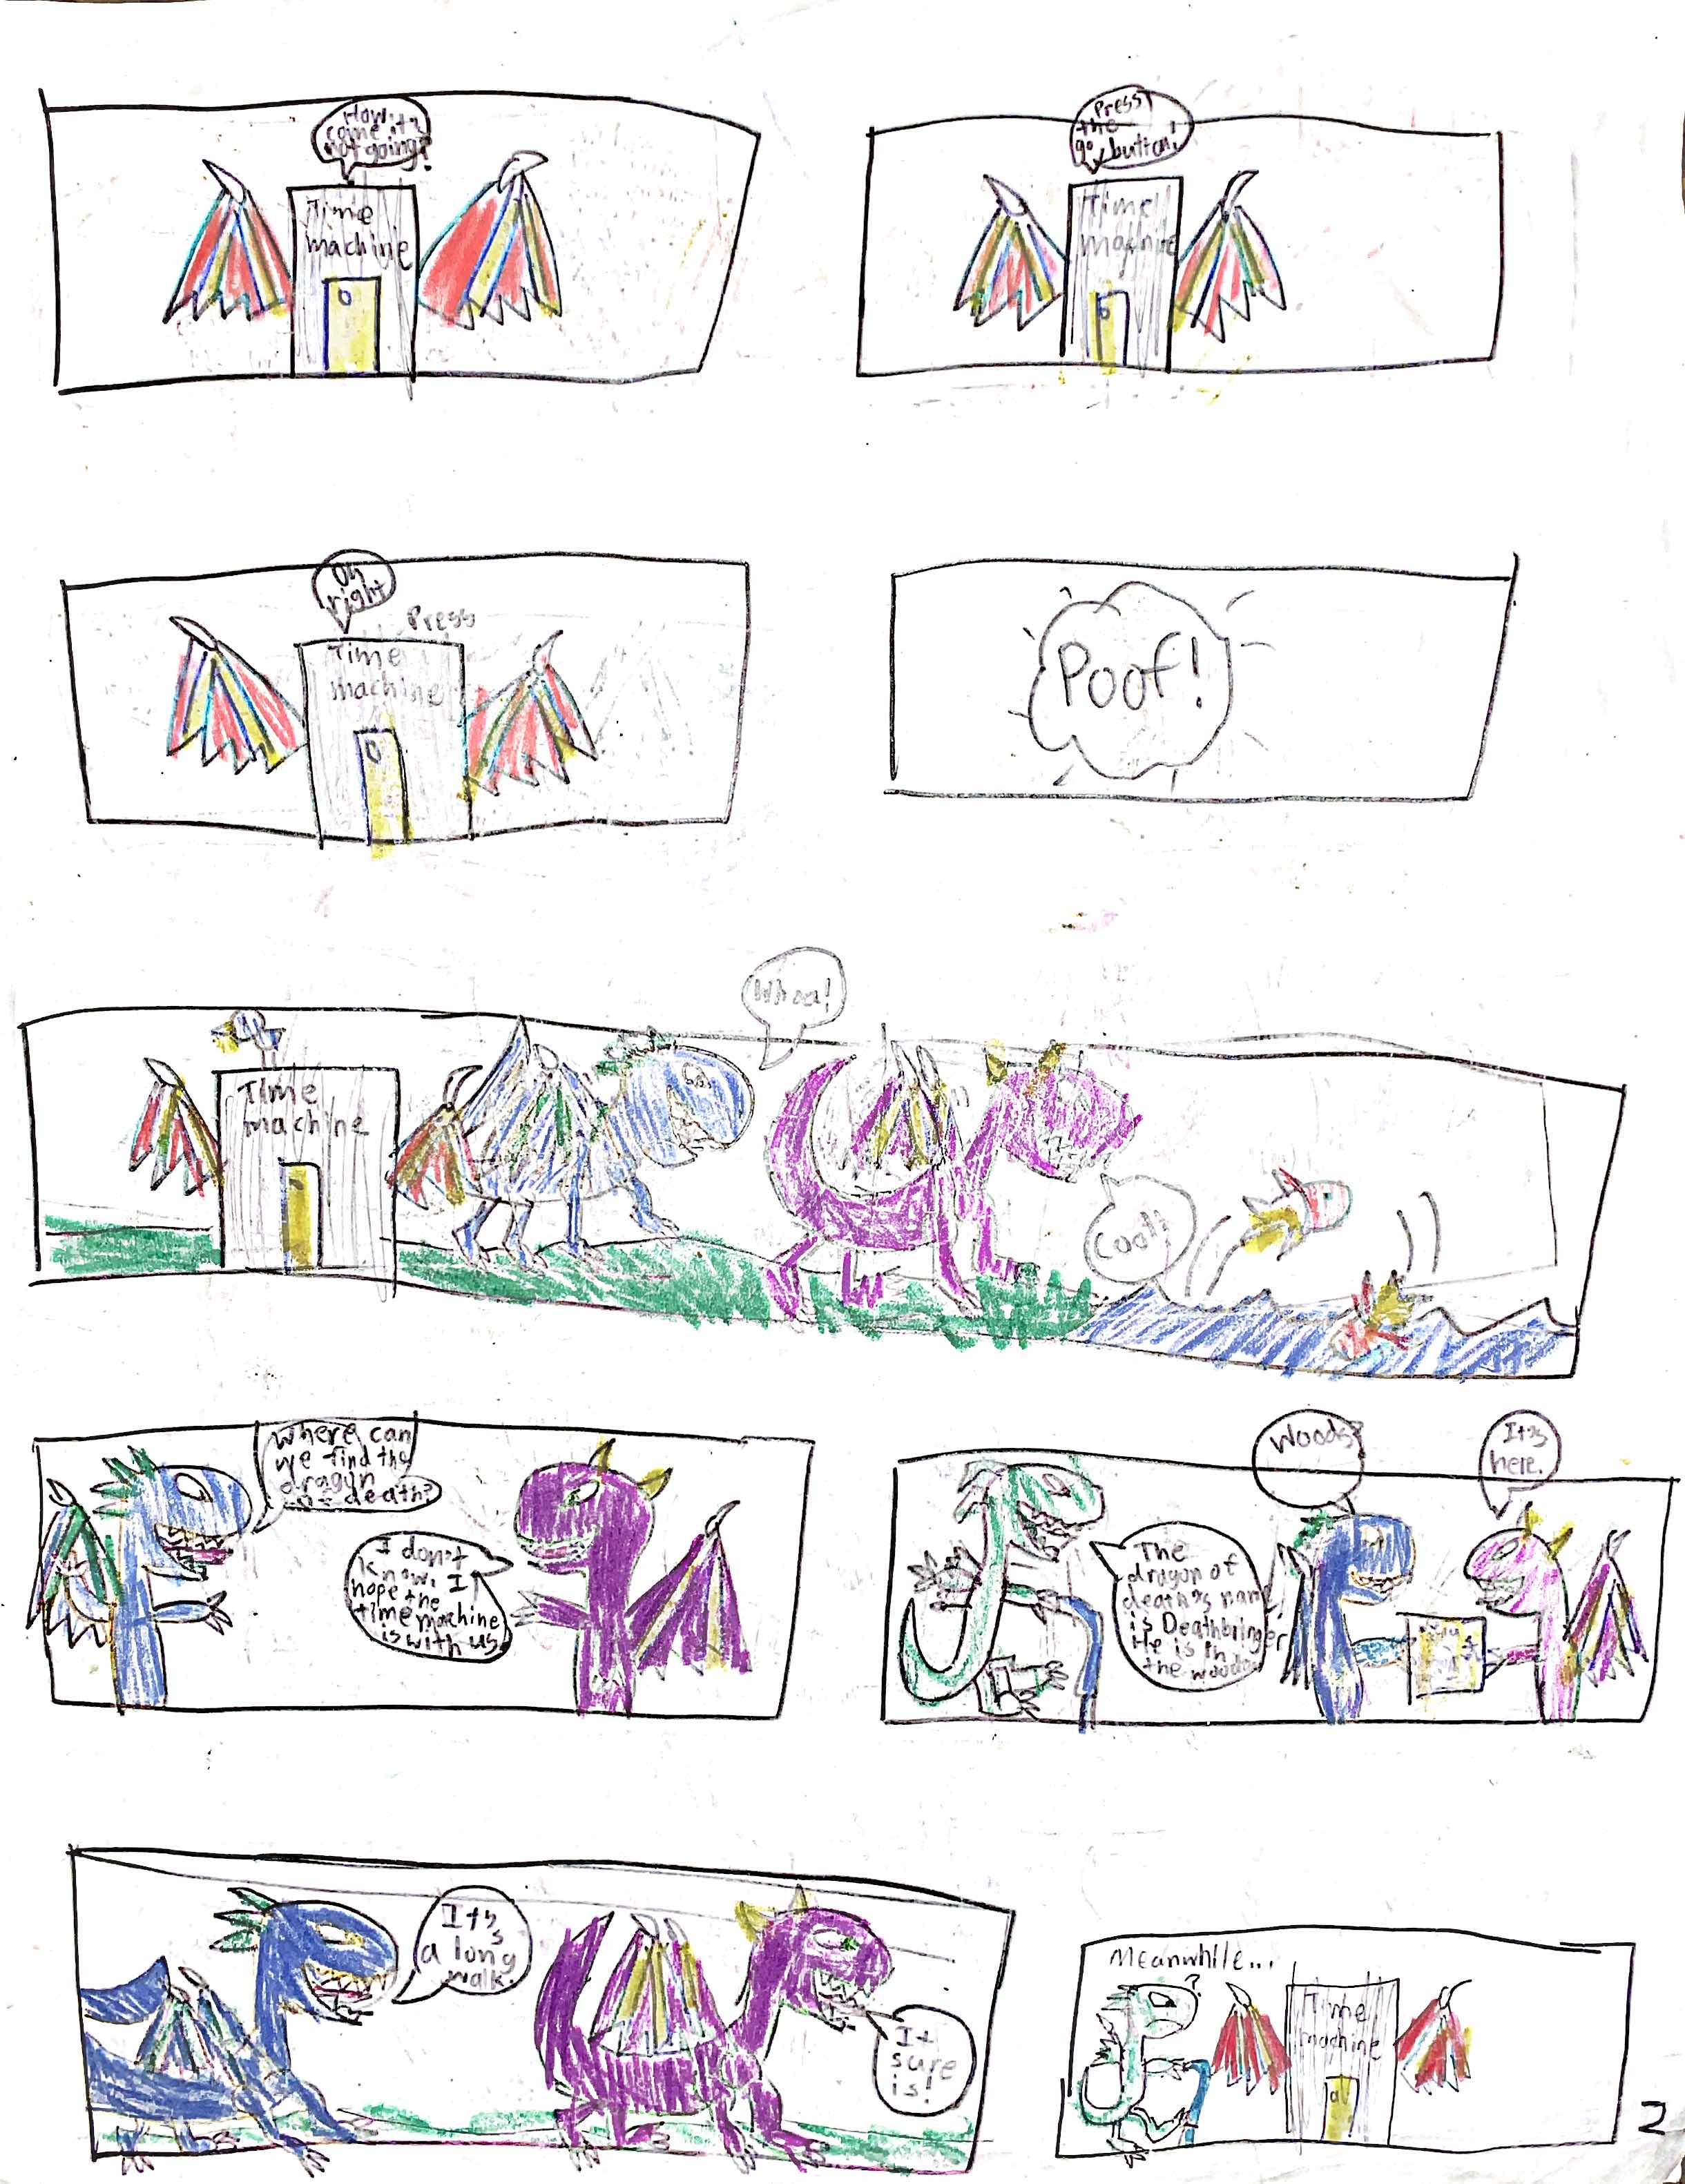 How
come it's
not going?
Time
machine
Press
the
go button!
Time
machine
Oh
right
Press
Time
machine
Poof!
Whoa!
Time
machine
Cool!
Where can
we find the
dragon
of death?
I don't
know. I
hope the
time machine
is with us.
The
dragon of
death's name
is Deathbringer
He is in
the woods.
Woods?
It's
here.
It's
a long
walk.
It
sure
is!
Meanwhile...
?
Time
machine
2